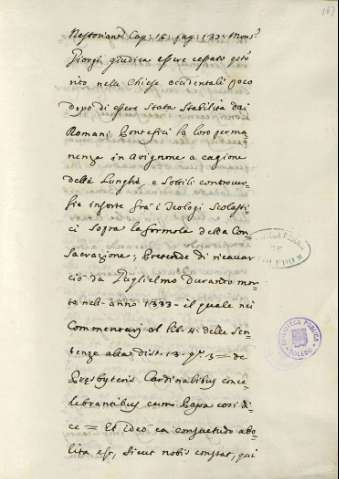 167
Nestoriani Cap: 16: pag: 132. Mons.r
Giorgi giudica essere cessato q.to
rito nelle Chiese occidentali poco
dopo di essere stata stabilita dai
Romani Pontefici la loro perma
nenza in Avignone a cagione
delle lunghe, e sottili controver
sie insorte fra i Teologi Scolasti
ci sopra la formola della Con
sacrazione; Pretende di ricavar
ciò da Guglielmo Durando mor
to nell'anno 1333 - il quale nei
Commentarj al lib. 4. delle Sen
tenze alla dist. 13. q. 3 = de
Presbyteris Cardinalibus conce
lebrantibus cum Papa così di
ce = Et ideo ea consuetudo abo
lita est, sicut nobis constat, qui
BIBLIOTECA PUBLICA
TOLEDO